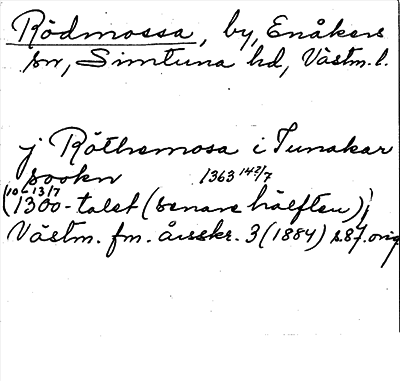 Rödmossa, by, Enåkers
sn, Simtuna hd, Västm. l.
j Röthemosa i Tunakar
sookn 1363 14 2/7
(1300-talet (senare hälften)
Västm. fm. årsskr. 3 (1884) s. 87. orig